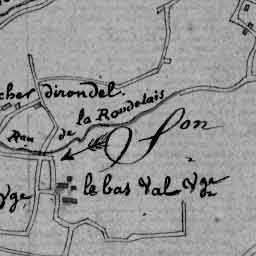 cher dirondel.
la Roudelais
Rau de
Son
le bas Val Yge
Yge